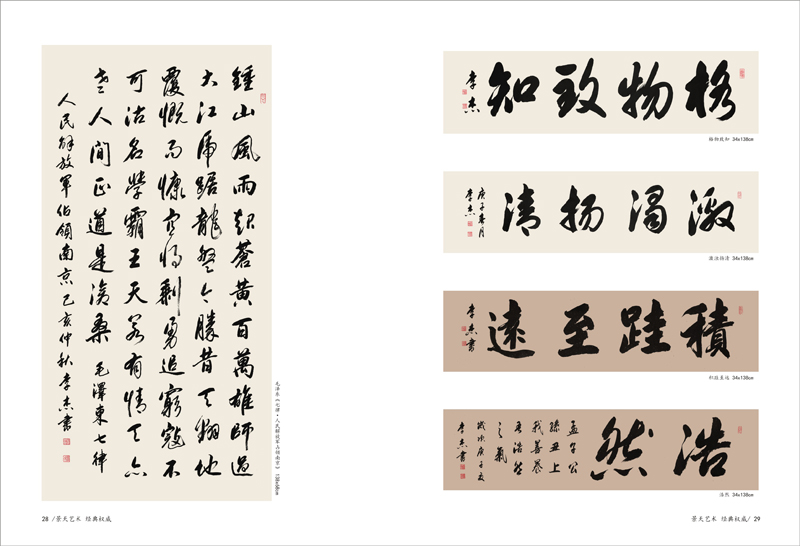 鍾山風雨起蒼黃百萬雄師過
大江虎踞龍盤今勝昔天翻地
覆慨而慷宜將剩勇追窮寇不
可沽名學霸王天若有情天亦
老人間正道是滄桑 毛澤東七律
人民解放軍佔領南京 己亥仲秋 李杰書
毛泽东《七律·人民解放军占领南京》 138x68cm
28 /景天艺术 经典权威
格物致知
李杰
格物致知 34x138cm
激濁扬清
庚子春月
李杰
激浊扬清 34x138cm
積跬至遠
李杰書
积跬至远 34x138cm
浩然
孟子公
孫丑上
我善養
吾浩然
之氣
歲次庚子夏
李杰書
浩然 34x138cm
景天艺术 经典权威/ 29